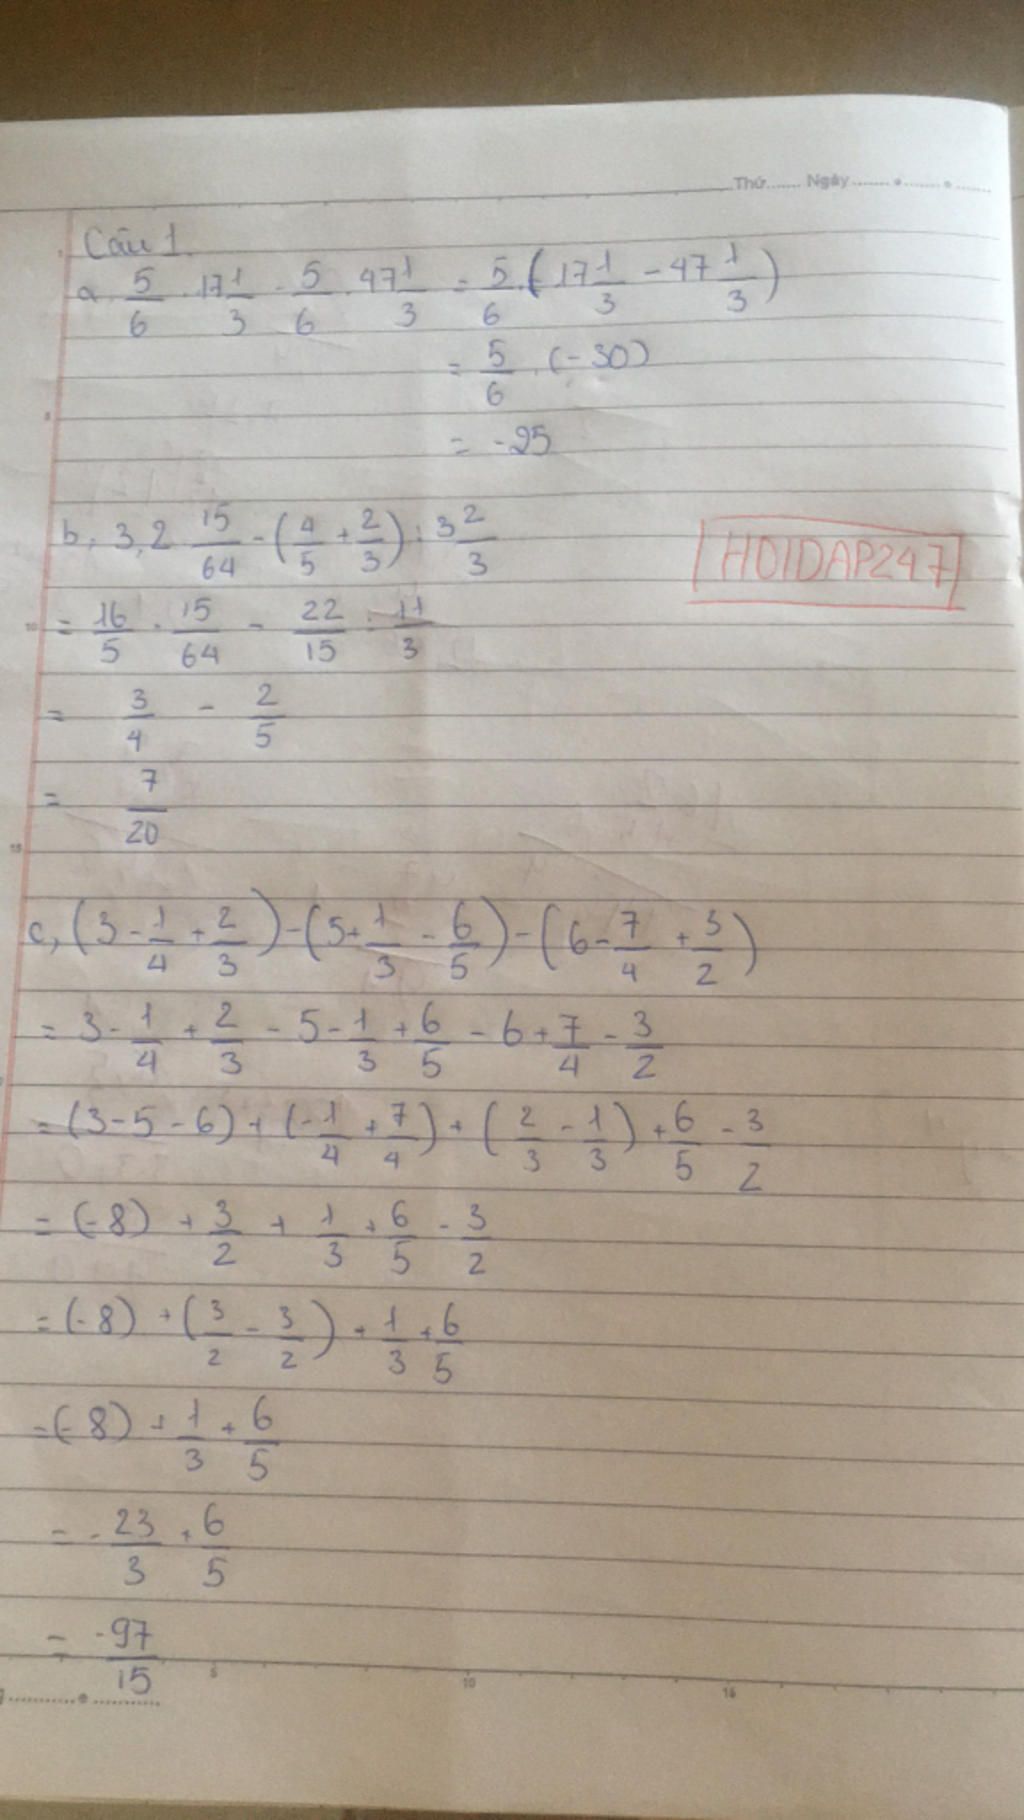 Thứ....... Ngày ........●........●.......
Câu 1.
a. 5/6 . 17 1/3 - 5/6 . 47 1/3 = 5/6 . ( 17 1/3 - 47 1/3 )
= 5/6 . (-30)
= -25
b, 3,2 . 15/64 - ( 4/5 + 2/3 ) : 3 2/3
HOIDAP247
= 16/5 . 15/64 - 22/15 : 11/3
= 3/4 - 2/5
= 7/20
c, ( 3 - 1/4 + 2/3 ) - ( 5 + 1/3 - 6/5 ) - ( 6 - 7/4 + 3/2 )
= 3 - 1/4 + 2/3 - 5 - 1/3 + 6/5 - 6 + 7/4 - 3/2
= (3 - 5 - 6) + ( -1/4 + 7/4 ) + ( 2/3 - 1/3 ) + 6/5 - 3/2
= (-8) + 3/2 + 1/3 + 6/5 - 3/2
= (-8) + ( 3/2 - 3/2 ) + 1/3 + 6/5
= (-8) + 1/3 + 6/5
= - 23/3 + 6/5
= -97/15
5 10 15